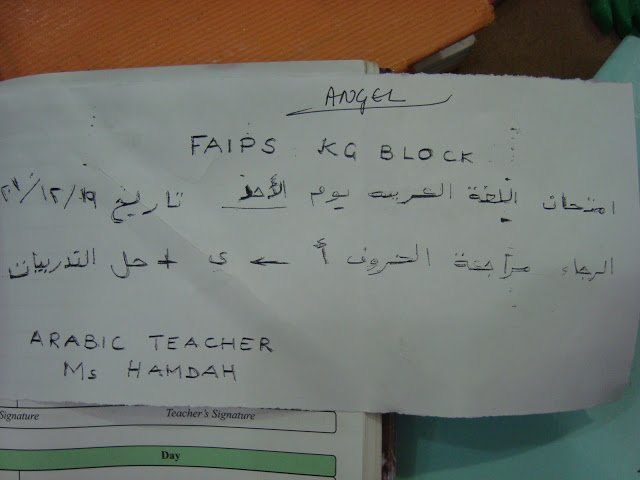 ANGEL
FAIPS KG BLOCK
امتحان اللغة العربيه يوم الأحد تاريخ ٢٧/١٢/٠٩
الرجاء مراجعة الحروف أ ← ي + حل التدريبات
ARABIC TEACHER
Ms HAMDAH
Signature Teacher's Signature
Day